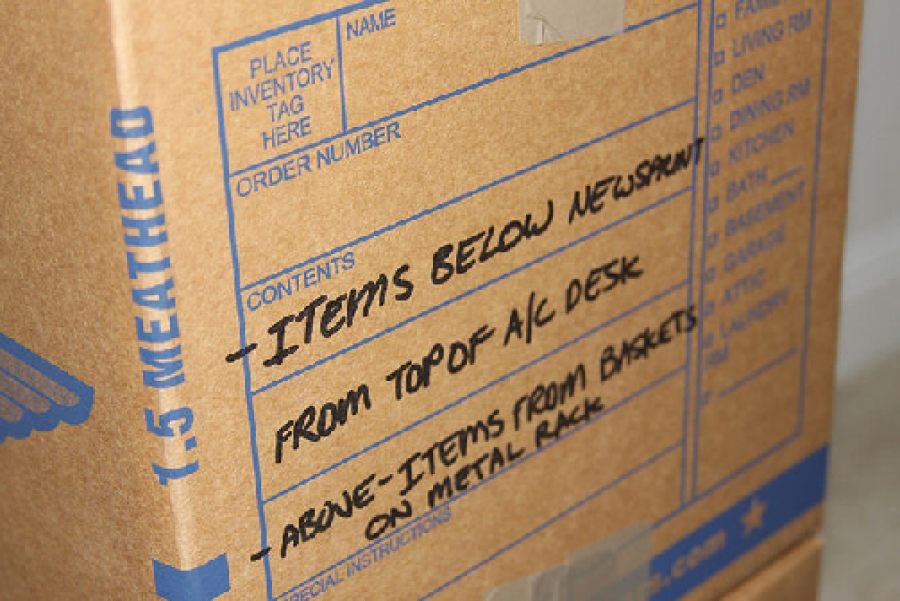 1.5 MEATHEAD
PLACE
INVENTORY
TAG
HERE
NAME
ORDER NUMBER
CONTENTS
-ITEMS BELOW NEWSPRINT
FROM TOP OF A/C DESK
-ABOVE-ITEMS FROM BASKETS
ON METAL RACK
SPECIAL INSTRUCTIONS
LIVING RM
DEN
DINING RM
KITCHEN
BATH
BASEMENT
GARAGE
ATTIC
LAUNDRY
RM
.com